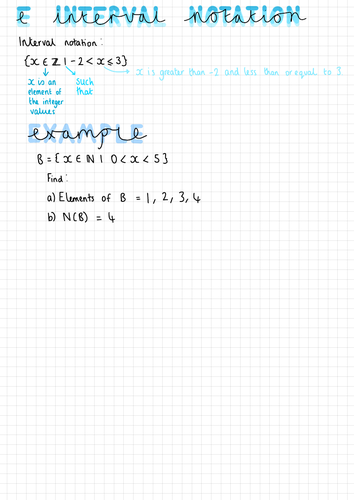 E INTERVAL NOTATION
Interval notation:
{x ∈ ℤ | -2 < x ≤ 3}
x is greater than -2 and less than or equal to 3
x is an element of the integer values
such that
EXAMPLE
B = { x ∈ ℕ | 0 < x < 5 }
Find:
a) Elements of B = 1, 2, 3, 4
b) N(B) = 4